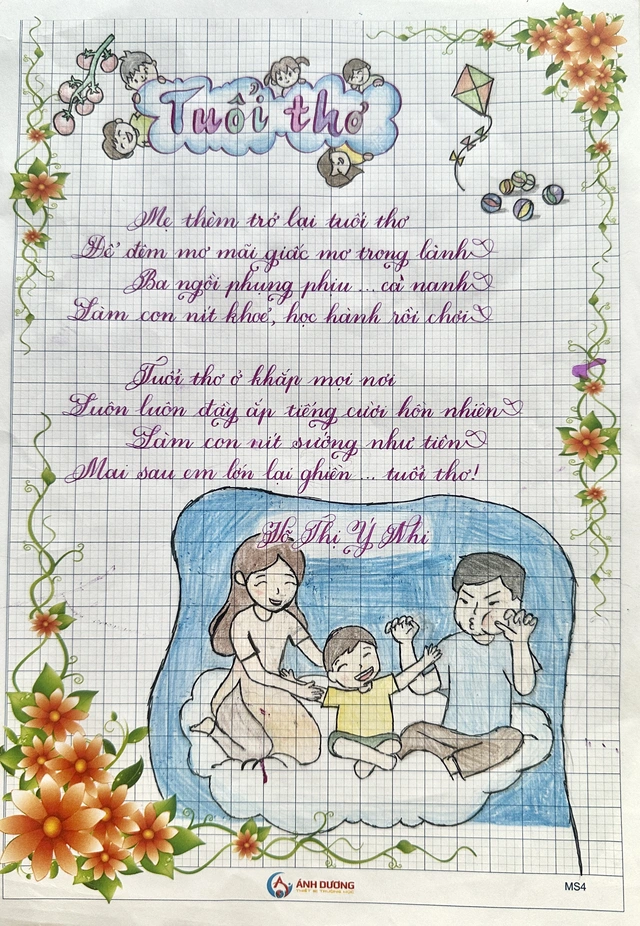 Tuổi thơ
Mẹ thèm trở lại tuổi thơ
Để đêm mơ mãi giấc mơ trong lành
Ba ngồi phụng phịu ... cà nanh
Làm con nít khoẻ, học hành rồi chơi
Tuổi thơ ở khắp mọi nơi
Luôn luôn đầy ắp tiếng cười hồn nhiên
Làm con nít sướng như tiên
Mai sau em lớn lại ghiền ... tuổi thơ!
Hồ Thị Ý Nhi
ÁNH DƯƠNG
THIẾT BỊ TRƯỜNG HỌC
MS4